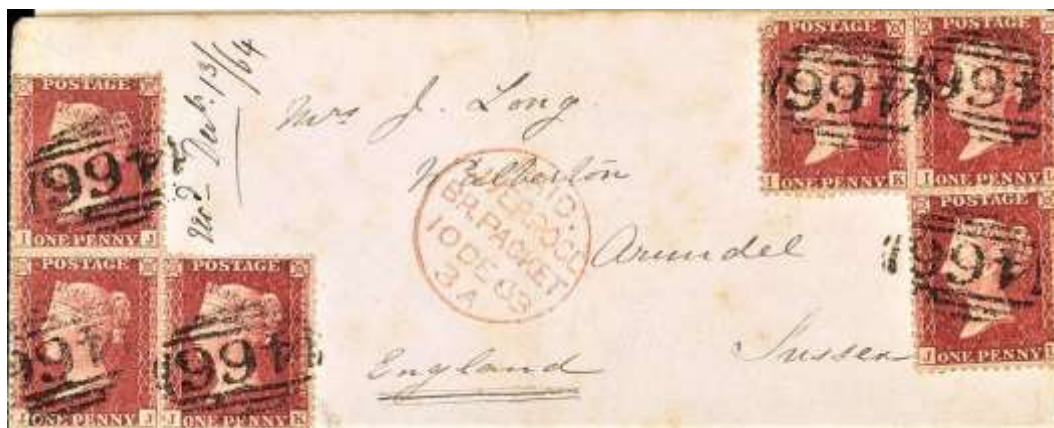 POSTAGE
466
I ONE PENNY J
POSTAGE
466
ONE PENNY J
POSTAGE
466
J ONE PENNY K
13/64
Mrs J. Long
Walberton
Arundel
Sussex
England
PAID
LIVERPOOL
BR. PACKET
10 DE 63
3 A
POSTAGE
466
I ONE PENNY K
POSTAGE
466
I ONE PENNY
POSTAGE
466
J ONE PENNY